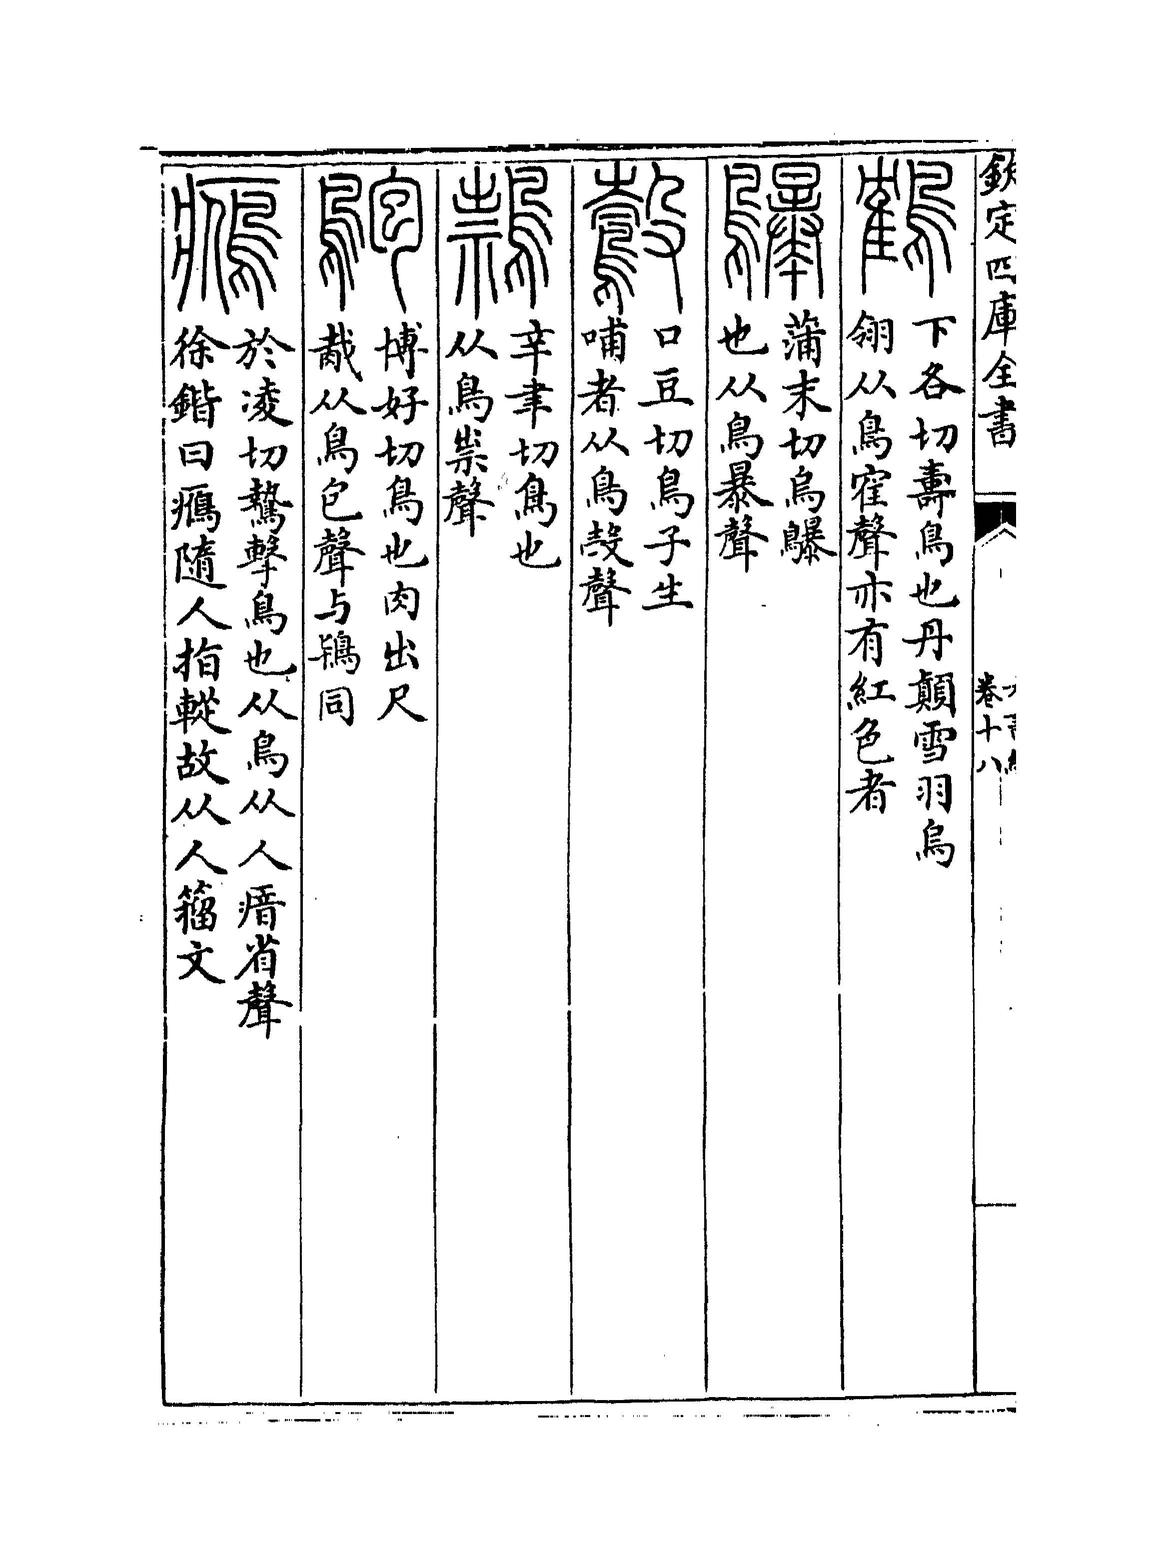 欽定四庫全書
卷十八
鶴
下各切壽鳥也丹顛雪羽烏
翎从鳥寉聲亦有紅色者
鸔
蒲末切烏鸔
也从鳥暴聲
鷇
口豆切鳥子生
哺者从鳥㱿聲
辛聿切鳥也
从鳥祟聲
博好切鳥也肉出尺
胾从鳥包聲与鴇同
於凌切鷙擊鳥也从鳥从人瘖省聲
徐鍇曰𤸰隨人指䡮故从人籀文